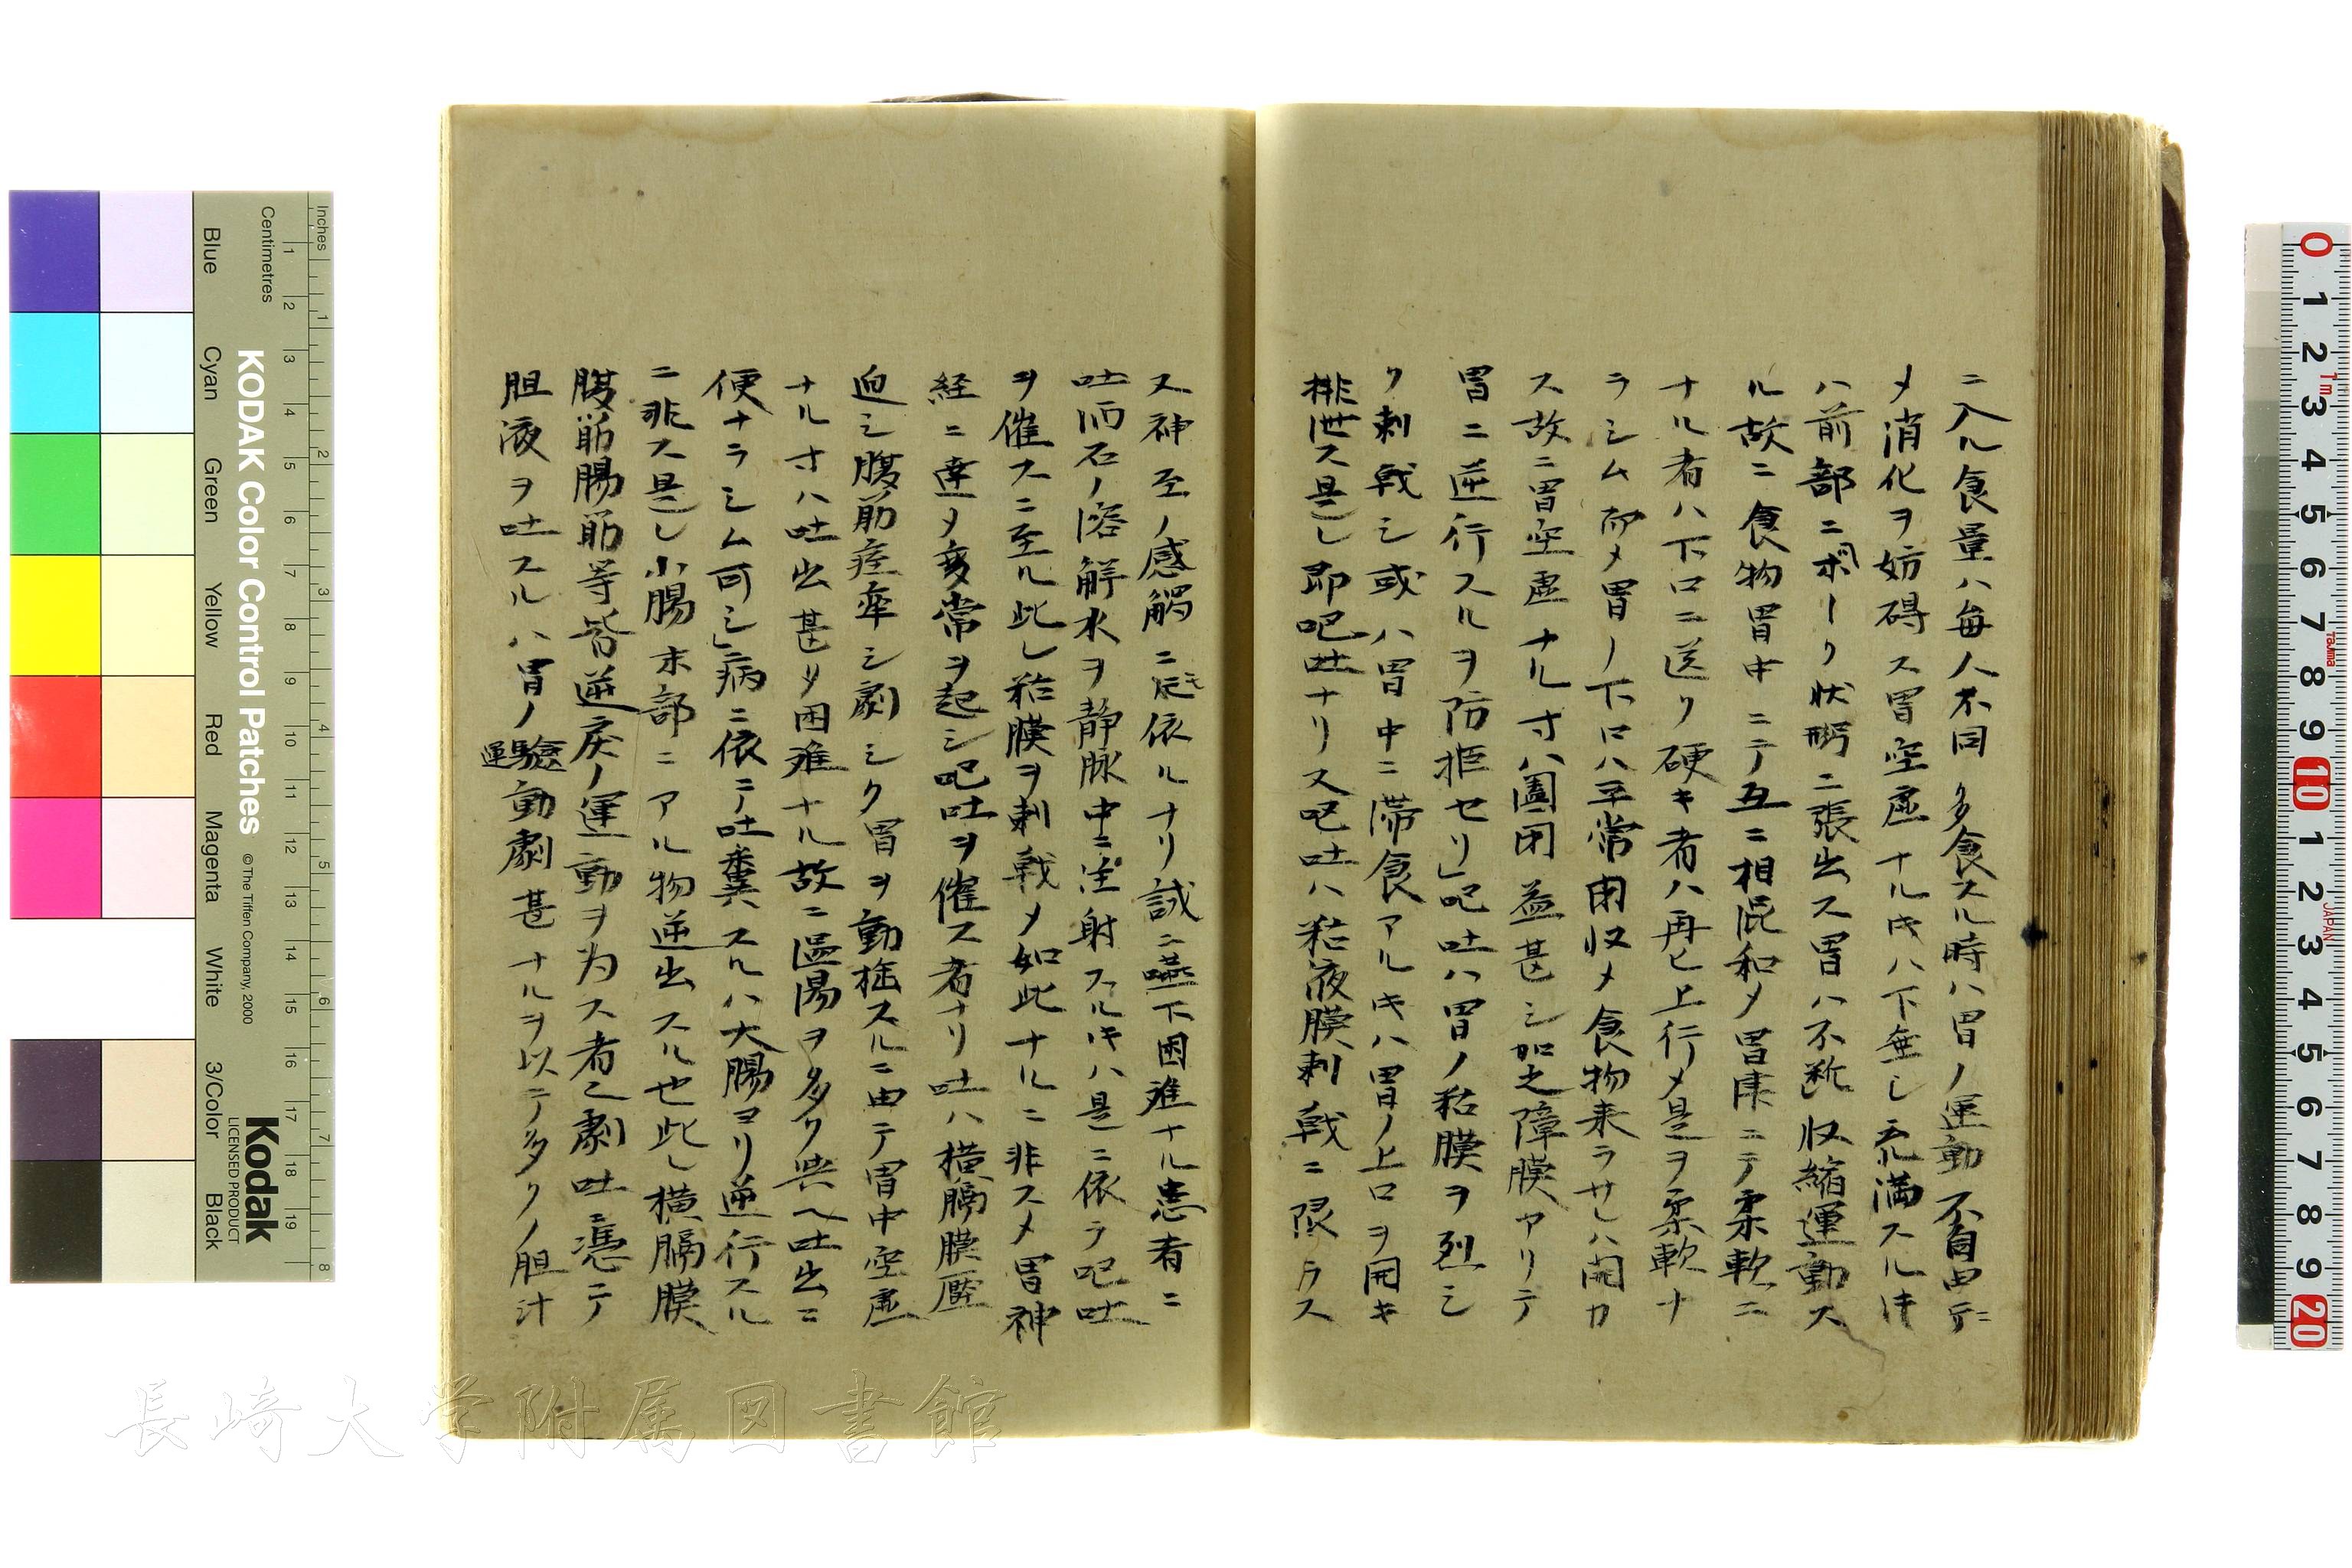 ニ入ル食量ハ毎人不同多食スル時ハ胃ノ運動不自由ニテ
メ消化ヲ妨碍ス胃空虚ナルキハ下垂し充満スルキ
ハ前部ニボーク状ニ張出ス胃ハ不断収縮運動ス
ル故ニ食物胃中ニテ互ニ相混和メ胃床ニテ柔軟ニ
ナル者ハ下口ニ送リ硬キ者ハ再ヒ上行メ是ヲ柔軟ナ
ラシム而メ胃ノ下口ハ平常閉収メ食物来ラサレハ開カ
ス故ニ胃空虚ナル寸ハ闔閉益甚シ加之障膜アリテ
胃ニ逆行スルヲ防拒セリ」吐ハ胃ノ粘膜ヲ烈シ
ク刺戟シ或ハ胃中ニ滞食アルキハ胃ノ上口ヲ開キ
排泄ス是レ即吧吐ナリ又吧吐ハ粘液膜刺戟ニ限ラス
又神至ノ感觸ニ依ルナリ誠ニ嚥下困難ナル患者ニ
吐酒石ノ溶解水ヲ静脉中ニ注射スルキハ是ニ依テ吧吐
ヲ催スニ至ル此レ粘膜ヲ刺戟メ如此ナルニ非スメ胃神
経ニ達メ変常ヲ起シ吧吐ヲ催ス者ナリ吐ハ横膈膜壓
迫シ腹筋痙牽シ劇シク胃ヲ動揺スルニ由テ胃中空虚
ナル寸ハ吐出甚タ困難ナル故ニ温湯ヲ多ク與ヘ吐出ニ
便ナラシム可シ」病ニ依テ吐糞スルハ大腸ヨリ逆行スル
ニ非ス是レ小腸末部ニアル物逆出スル也此レ横膈膜
腹筋腸筋等皆逆戻ノ運動ヲ为ス者也劇吐ニ憑テ
胆液ヲ吐スルハ胃ノ運動劇甚ナルヲ以テ多クノ胆汁
KODAK Color Control Patches
© The Tiffen Company, 2000
Kodak
LICENSED PRODUCT
Inches
Centimetres
Blue
Cyan
Green
Yellow
Red
Magenta
White
3/Color
Black
長崎大学附属図書館